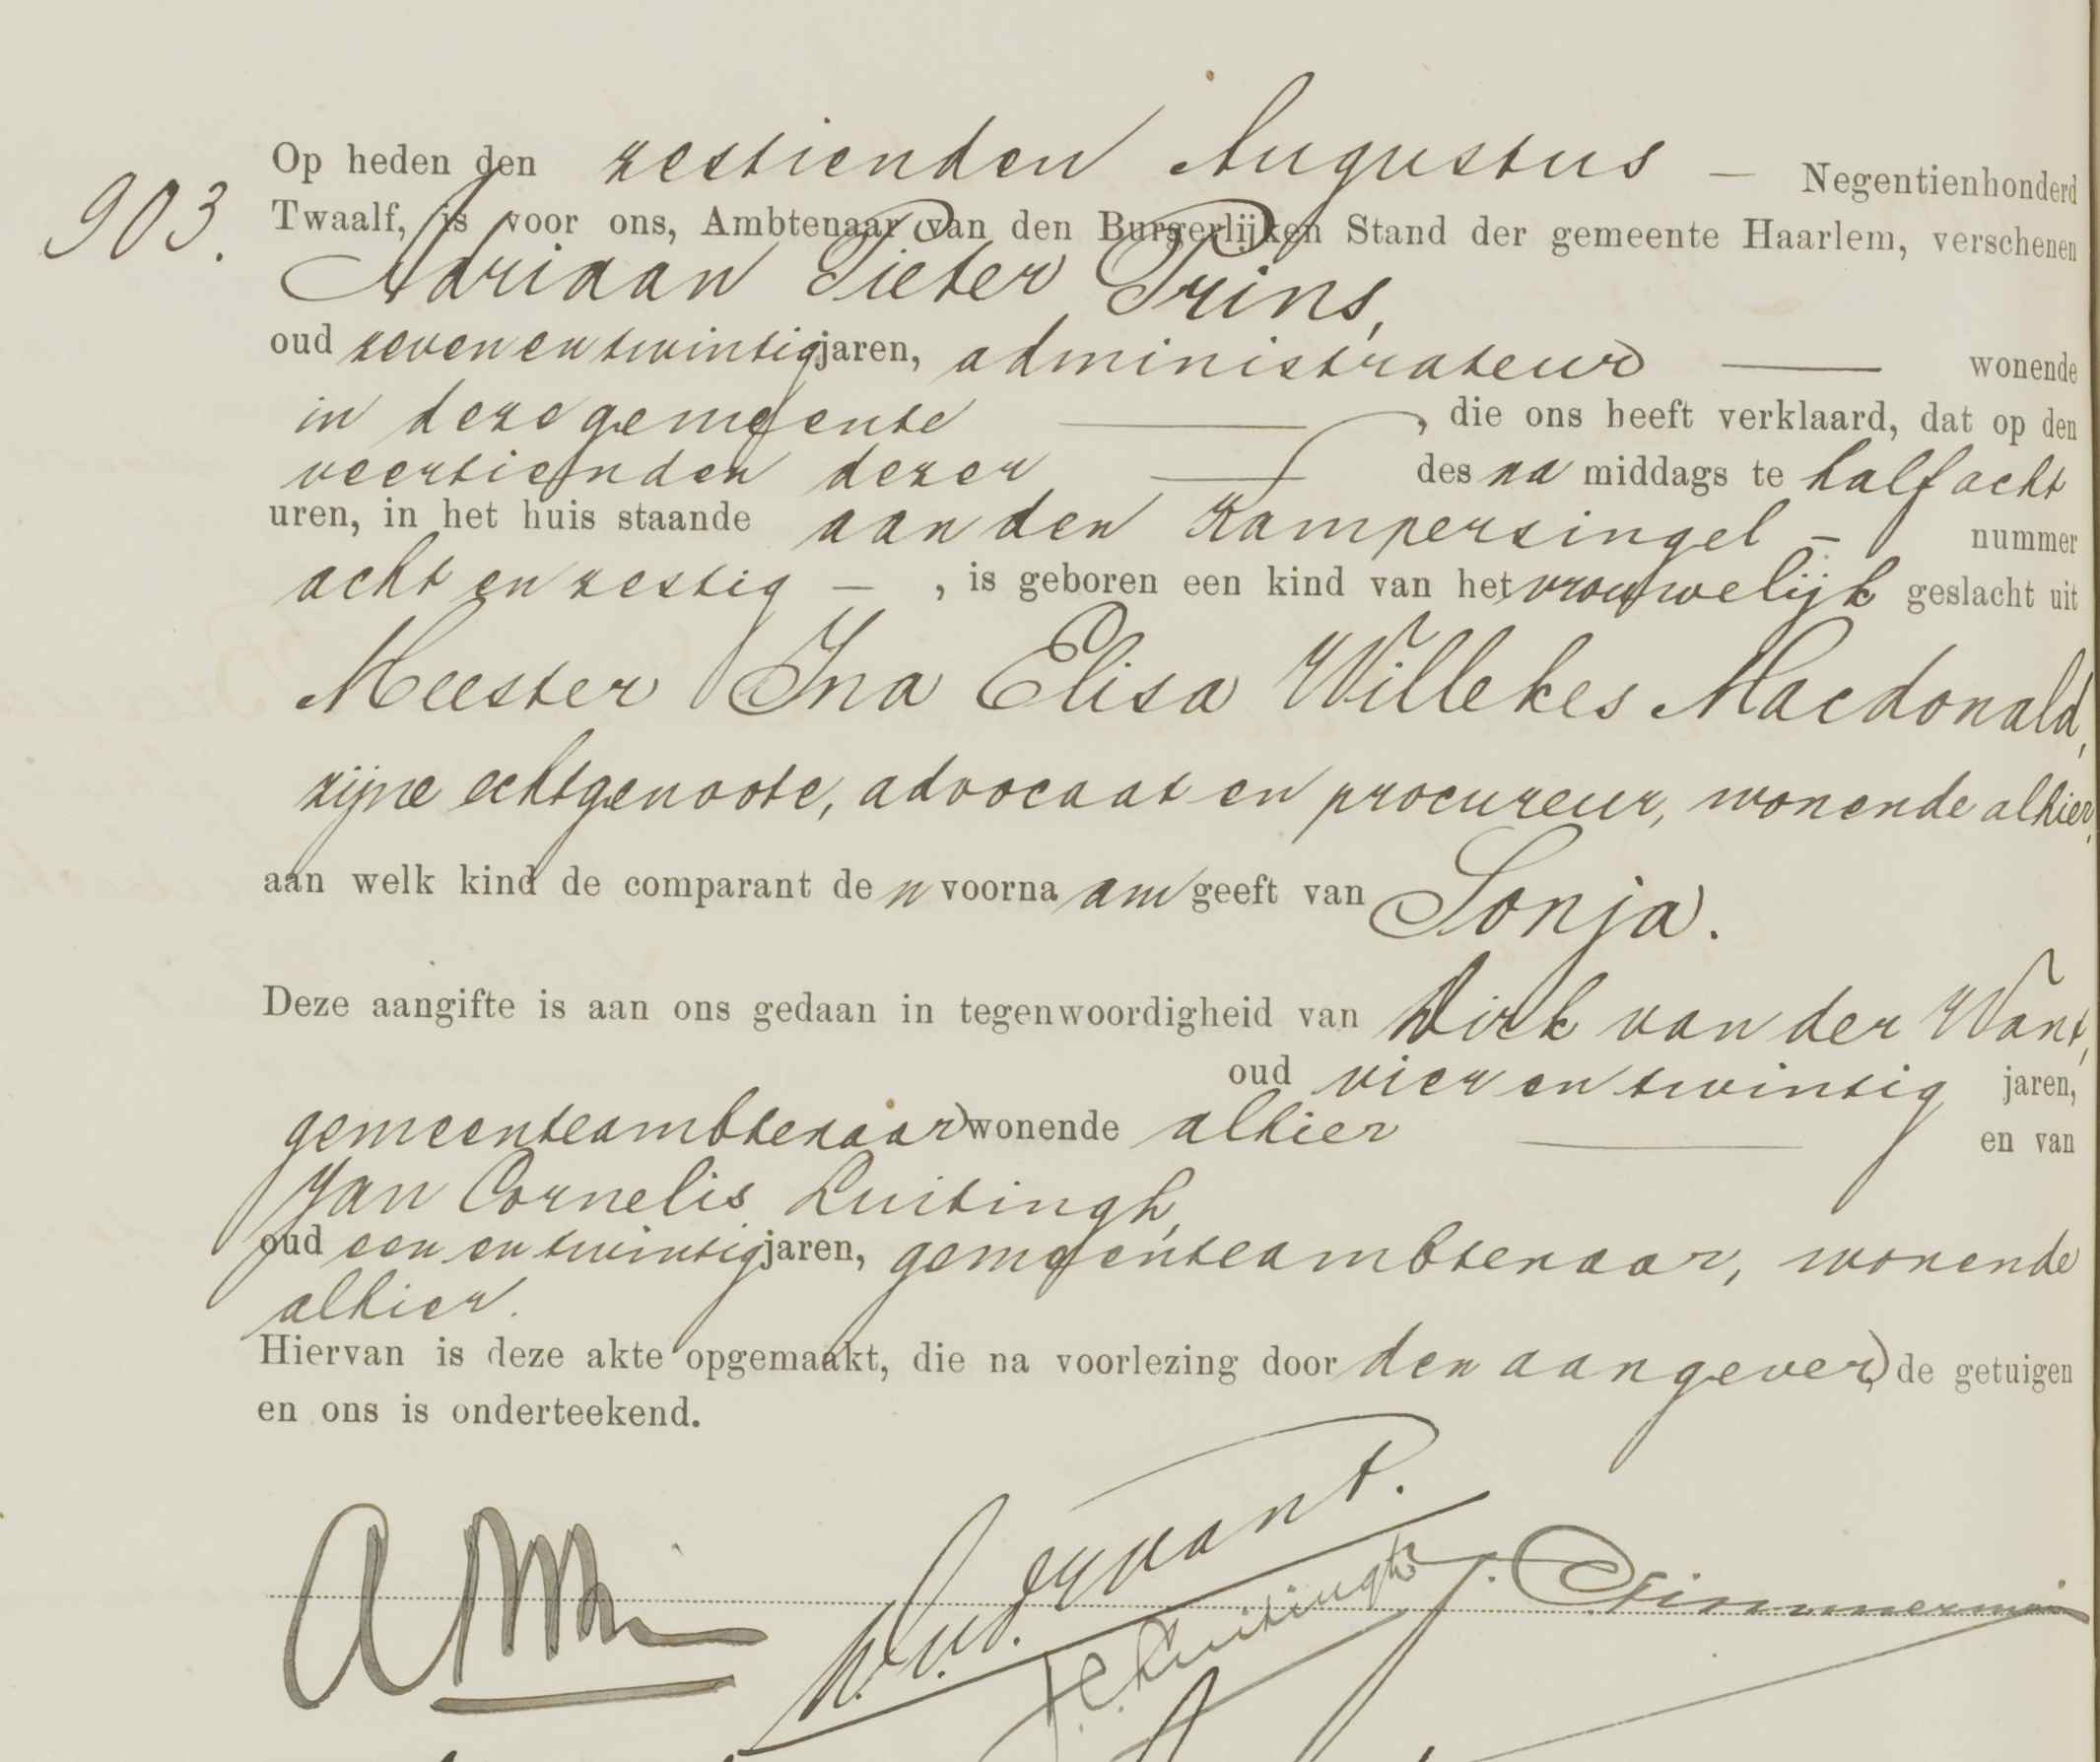 903.
Op heden den zestienden Augustus — Negentienhonderd
Twaalf, is voor ons, Ambtenaar van den Burgerlijken Stand der gemeente Haarlem, verschenen
Adriaan Pieter Prins,
oud zeven en twintig jaren, administrateur — wonende
in deze gemeente —, die ons heeft verklaard, dat op den
veertienden dezer — des na middags te half acht
uren, in het huis staande aan den Kampersingel — nummer
acht en zestig —, is geboren een kind van het vrouwelijk geslacht uit
Meester Ina Elisa Willekes Macdonald,
zijne echtgenoote, advocaat en procureur, wonende alhier,
aan welk kind de comparant de n voorna am geeft van Sonja.
Deze aangifte is aan ons gedaan in tegenwoordigheid van Dirk van der Want,
oud vier en twintig jaren,
gemeenteambtenaar wonende alhier — en van
Jan Cornelis Luitingh,
oud een en twintig jaren, gemeenteambtenaar, wonende
alhier.
Hiervan is deze akte opgemaakt, die na voorlezing door den aangever, de getuigen
en ons is onderteekend.
D. v. d. Want.
J. C. Luitingh